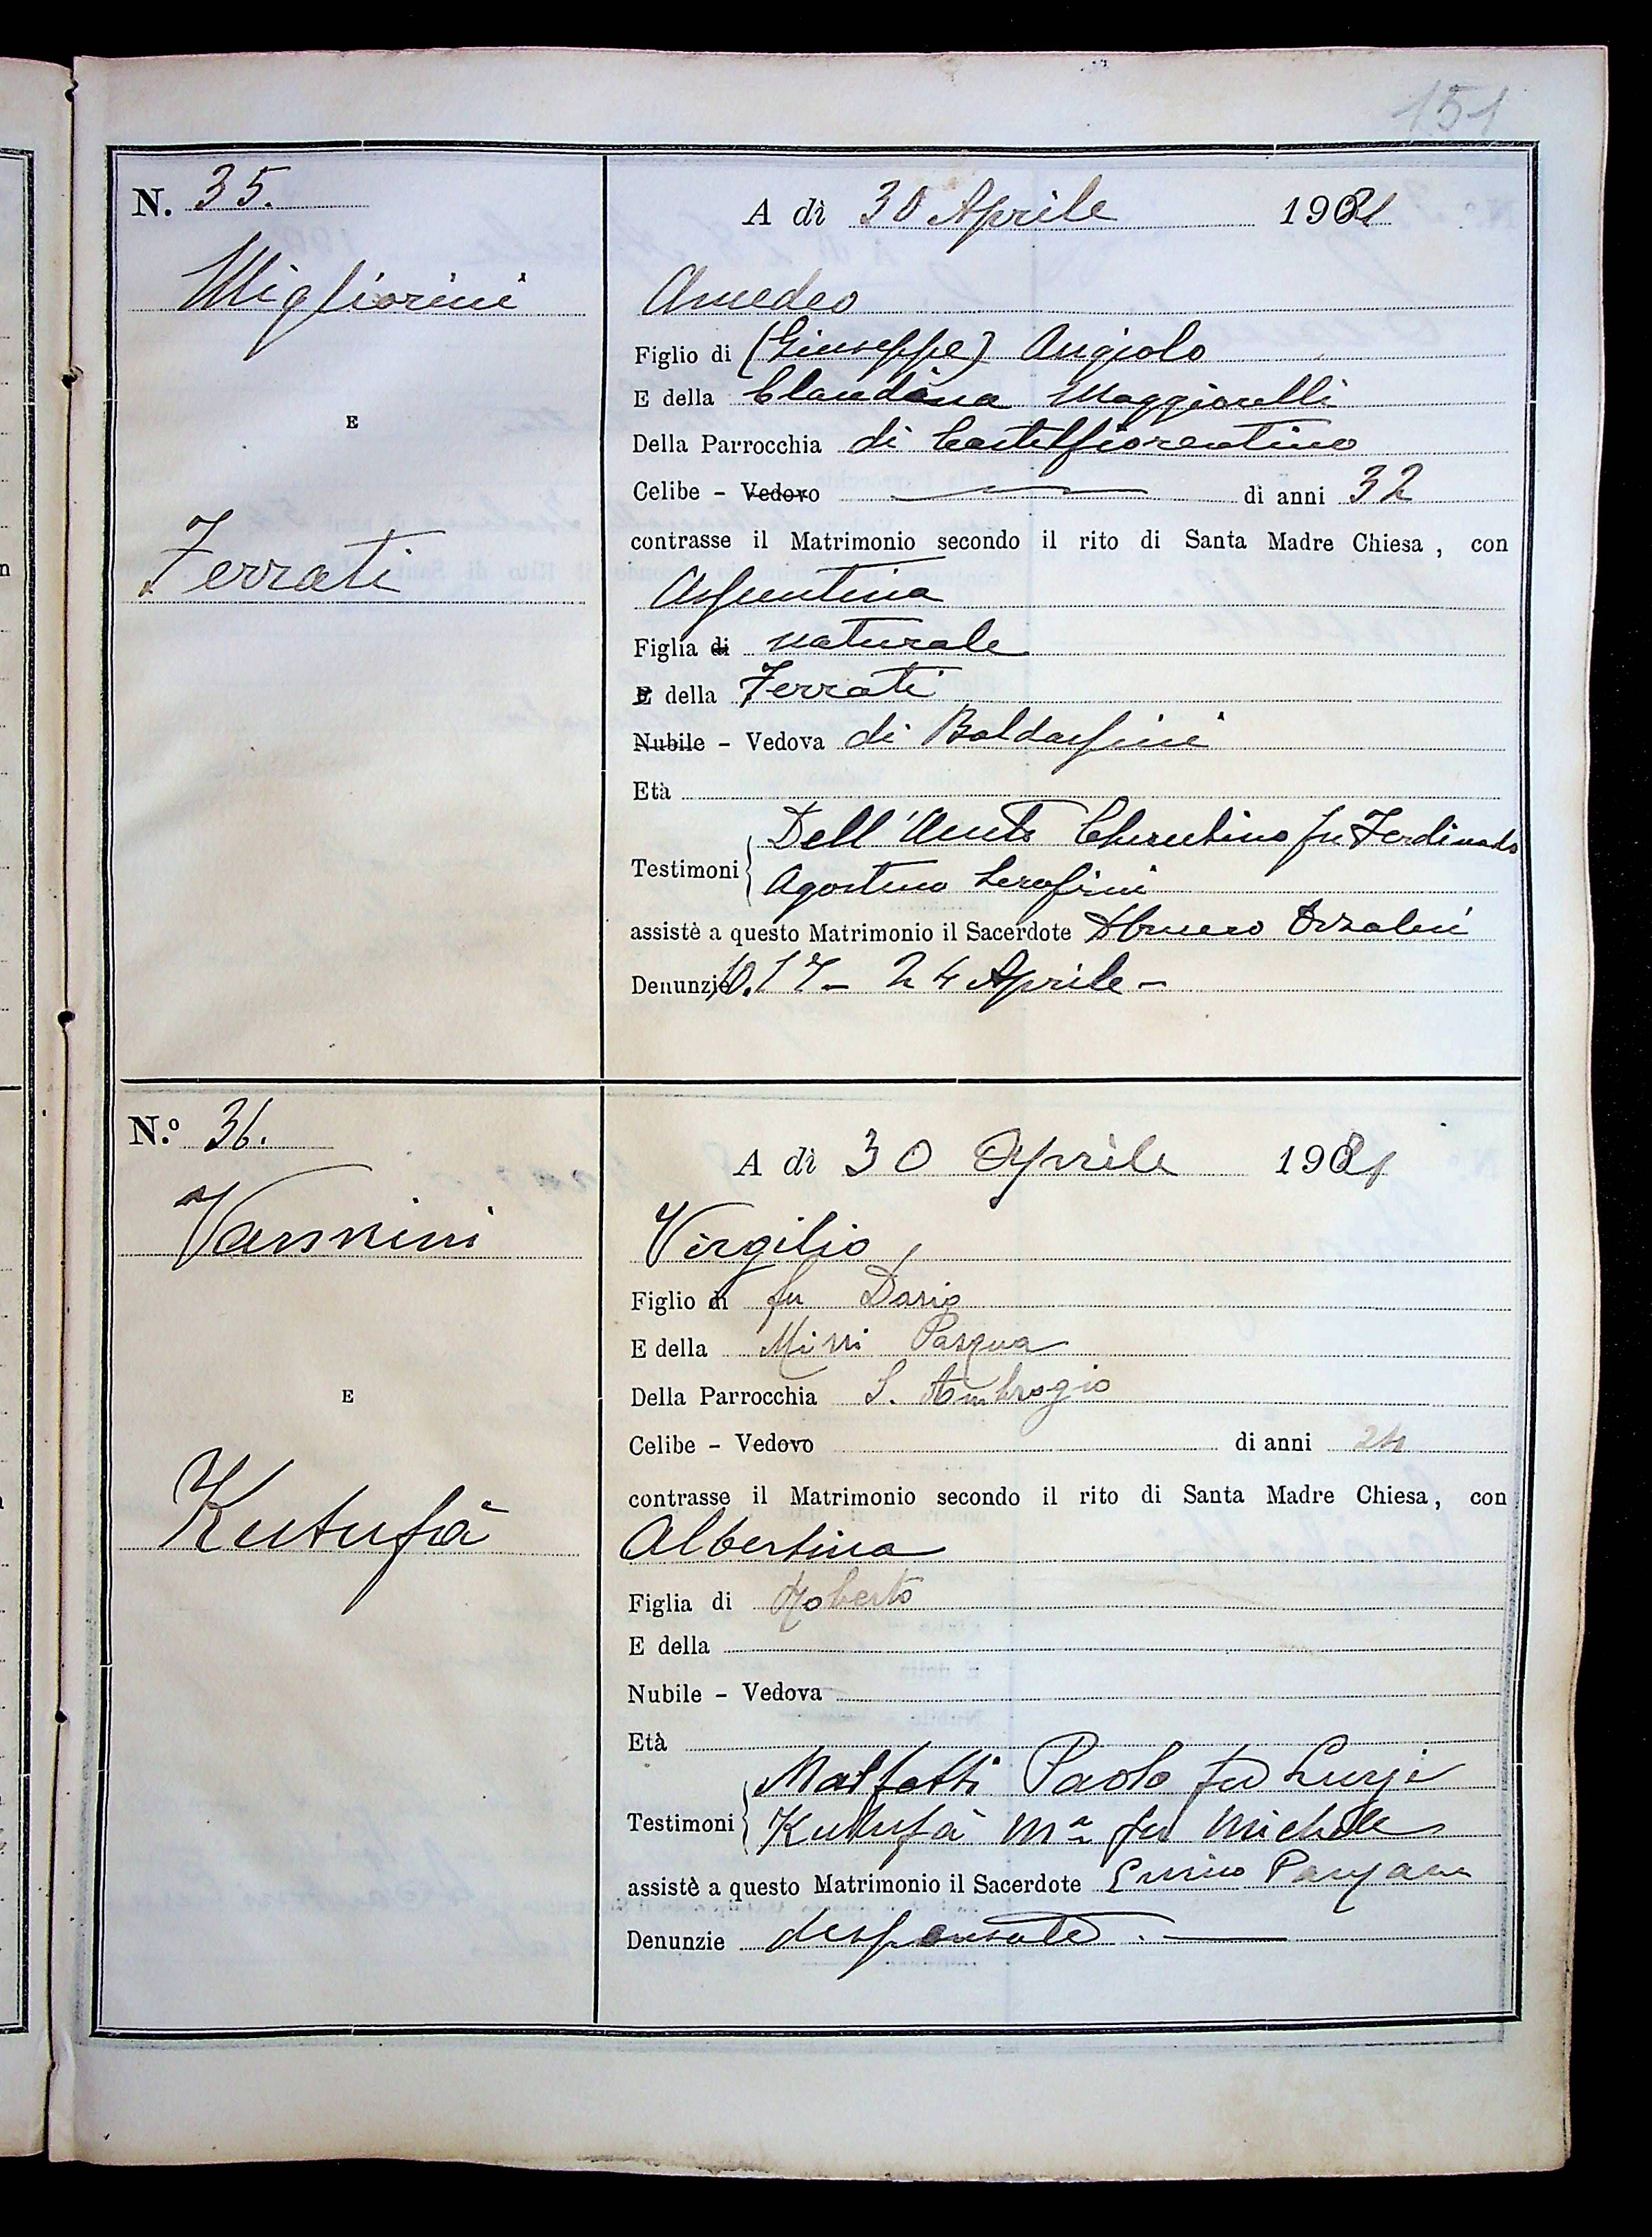 151
N. 35.
Migliorini
E
Ferrati
A dì 30 Aprile 1921
Amedeo
Figlio di (Giuseppe) Angiolo
E della Claudina Maggiorelli
Della Parrocchia di Castelfiorentino
Celibe - Vedovo di anni 32
contrasse il Matrimonio secondo il rito di Santa Madre Chiesa, con
Argentina
Figlia di naturale
E della Ferrati
Nubile - Vedova di
Età
Dell'Aiuto Cherubino fu Ferdinando
Testimoni
Agostino Serafini
assistè a questo Matrimonio il Sacerdote
Denunzie 10. 17 - 24 Aprile -
N.º 36.
Vannini
E
Kutufà
A dì 30 Aprile 1921
Virgilio,
Figlio di fu Dario
E della Pasqua
Della Parrocchia S. Ambrogio
Celibe - Vedovo di anni 24
contrasse il Matrimonio secondo il rito di Santa Madre Chiesa, con
Albertina
Figlia di Roberto
E della
Nubile - Vedova
Età
Malfatti Paolo fu Luigi
Testimoni
Kutufà Mª fu Michele
assistè a questo Matrimonio il Sacerdote Enrico
Denunzie dispensate.